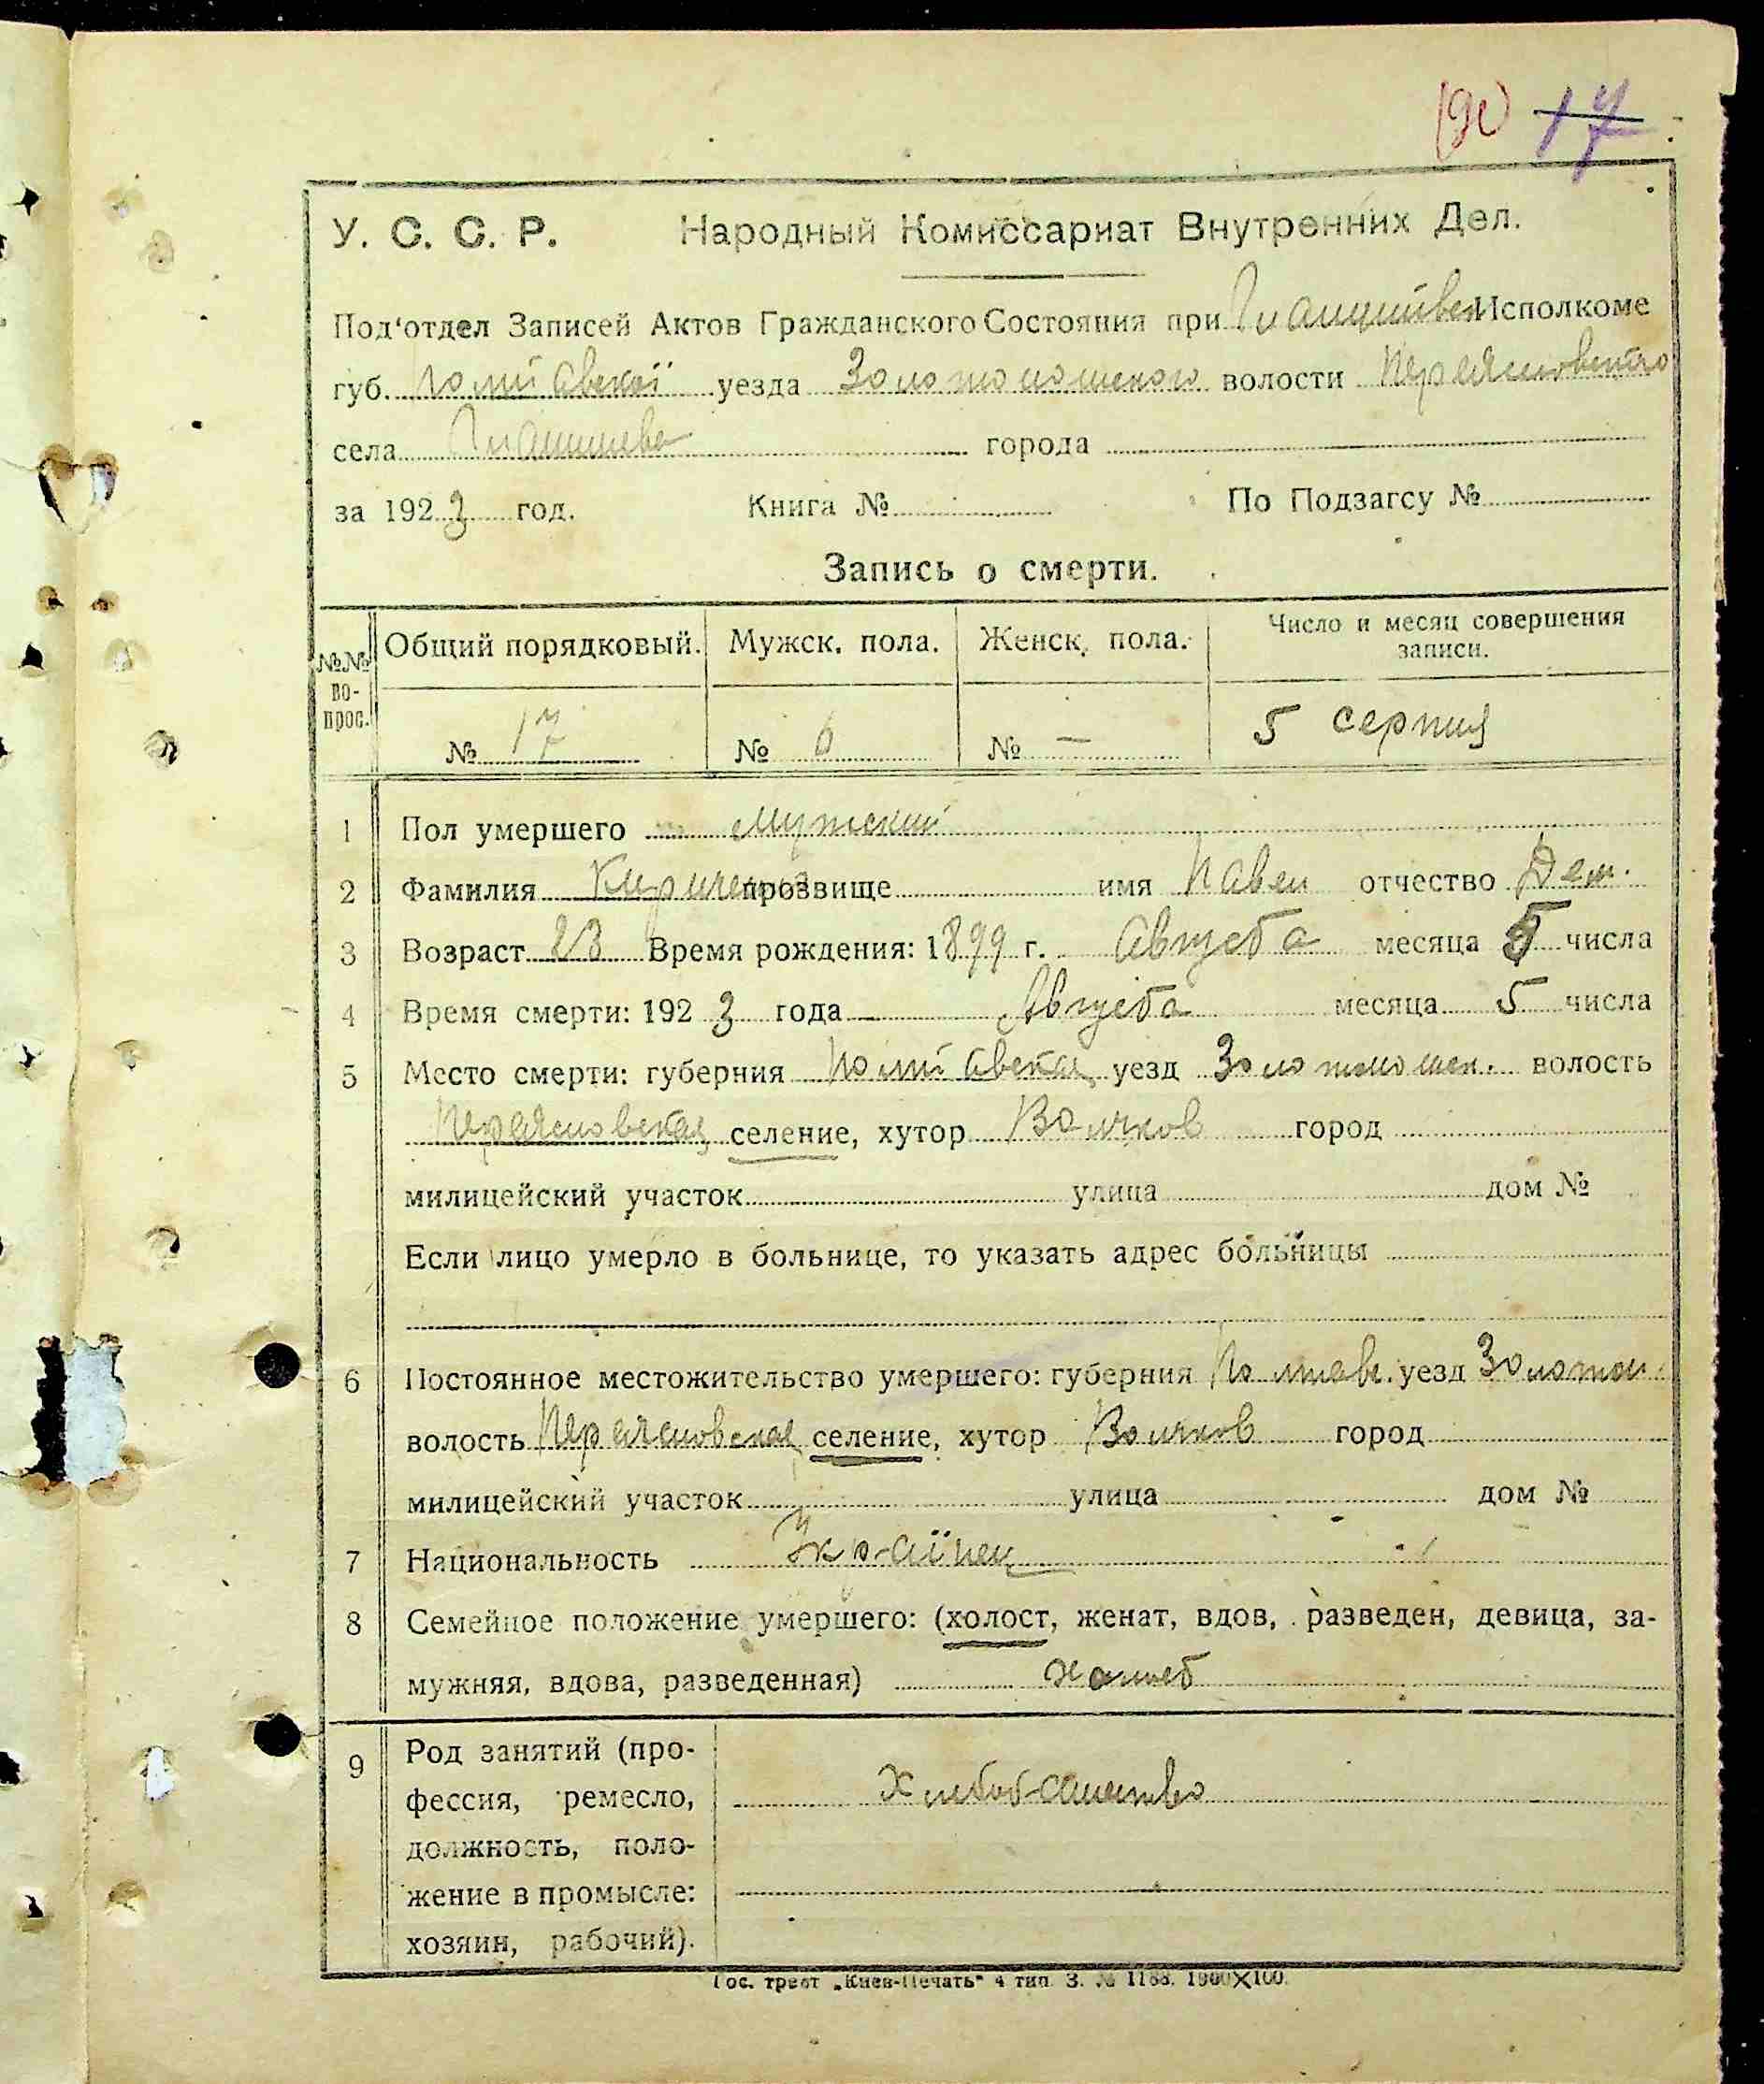 190 17
У. С. С. Р. Народный Комиссариат Внутренних Дел.
Под'отдел Записей Актов Гражданского Состояния при Исполкоме
губ. Полтавскоі уезда Золотоношского волости
села города
за 1923 год. Книга № По Подзагсу №
Запись о смерти.
№№ во-прос. Общий порядковый. Мужск. пола. Женск. пола. Число и месяц совершения записи.
№ 17 № 6 № — 5 серпня
1 Пол умершего мужский
2 Фамилия прозвище имя Павел отчество Дем.
3 Возраст 23 Время рождения: 1899 г. Августа месяца 5 числа
4 Время смерти: 1923 года — Августа месяца 5 числа
5 Место смерти: губерния Полтавская уезд Золотонош. волость
селение, хутор Волчков город
милицейский участок улица дом №
Если лицо умерло в больнице, то указать адрес больницы
6 Постоянное местожительство умершего: губерния Полтав. уезд Золотон.
волость селение, хутор Волчков город
милицейский участок улица дом №
7 Национальность Украінец
8 Семейное положение умершего: (холост, женат, вдов, разведен, девица, за-
мужняя, вдова, разведенная) холост
9 Род занятий (про-
фессия, ремесло, Хлебопашество
должность, поло-
жение в промысле:
хозяин, рабочий).
Гос. трест „Киев-Печать" 4 тип. З. № 1188. 1900×100.